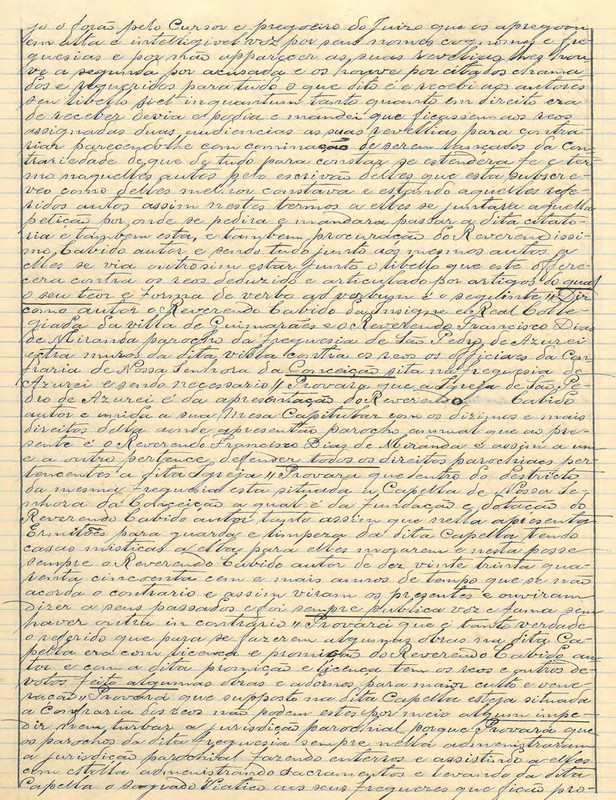 jo o forão pelo Cursor e pregoeiro do Juizo que os apregoou
em alta e intelegivel voz por seus nomes cognomes e fre-
quesias e por não apparecer as suas revelias lhes hou-
ve a segunda por acusada e os houve por citados chama-
dos e requeridos para tudo o que dito é e recebi aos autores
seu libello si et inquantum tanto quanto em direito era
de receber devia e podia e mandei que ficassem aos reos
assignadas duas audiencias as suas revellias para contra-
riar parecendo-lhe com cominação de serem lançados da Con-
trariedade de que de tudo para constar se estendera fé e ter-
mo naquelles autos pelo escrivão delles que esta subscre-
veo como delles melhor constava e estando aquelles refe-
ridos autos assim nestes termos a elles se juntara aquella
petição por onde se pedira e mandara passar a dita citato-
ria e tambem esta, e tambem procuração do Reverendissi-
mo Cabido autor e sendo tudo junto aos mesmos autos a
elles se via outrosim estar junto o libello que este offere-
cera contra os reos deduzido e articulado por artigos do qual
o seu teor e forma de verbo ad verbum é o seguinte " Diz
como autor o Reverendo Cabido da Insigne e Real Colle-
giada da villa de Guimarães e o Reverendo Francisco Dias
de Miranda parocho da freguesia de São Pedro de Azurei
extra muros da dita villa contra os reos os officiaes da Con-
fraria de Nossa Senhora da Conceição sita na freguesia de
Azurei e sendo necessario " Provara que a Igreja de São Pe-
dro de Azurei é da apresentação do Reverendo Cabido
autor e unida a sua Mesa Capitular com os dizimos e mais
direitos della aonde apresentão parocho annual que ao pre-
sente é o Reverendo Francisco Dias de Miranda e assim a um
e a outro pertence defender todos os direitos parochiaes per-
tencentes a dita Igreja " Provara que dentro do destricto
da mesma freguesia esta situada a Capella de Nossa Se-
nhora da Conceição a qual é da fundação e dotação do
Reverendo Cabido autor tanto assim que nella apresenta
Ermitões para guarda e limpeza da dita Capella tendo
casas misticas a ella para elles morarem e nesta posse
sempre o Reverendo Cabido autor de dez vinte trinta qua-
renta cincoenta cem e mais annos de tempo que se não
acorda o contrario e assim viram os presentes e ouviram
dizer a seus passados e foi sempre publica voz e fama sem
haver outra in contrario " Provará que é tanto verdade
o referido que para se fazerem algumas obras na dita Ca-
pella era com licença e promição do Reverendo Cabido au-
tor e com a dita promição e licença tem os reos e outros de-
votos feito algumas obras e adornos para maior culto e vene-
ração " Provará que supposto na dita Capella esteja situada
a Confraria dos reos não podem estes por meio algum impe-
dir nem turbar a jurisdição parochial porque Provará que
os parochos da dita freguesia sempre nella administraram
a jurisdição parochial fazendo enterros e assistindo a elles
com estolla administrando sacramentos e levando da dita
Capella o sagrado Viatico aos seus freguezes que ficão pro-